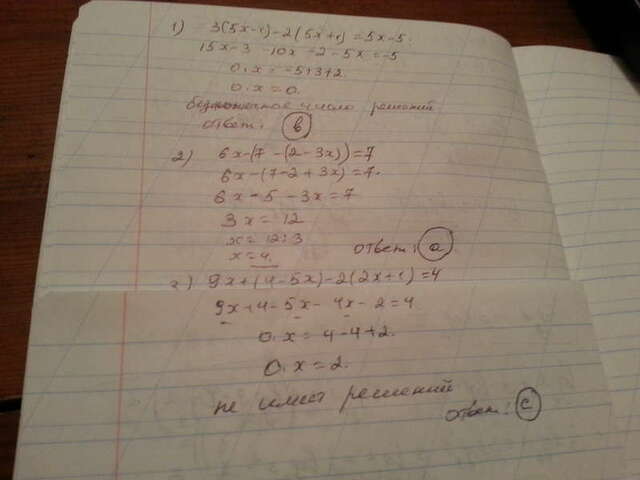 1) 3(5x-1)-2(5x+1)=5x-5.
15x-3-10x-2-5x=-5
0.x=-5+3+2.
0.x=0.
бесконечное число решений
ответ: в
2) 6x-(7-(2-3x))=7
6x-(7-2+3x)=7.
6x-5-3x=7
3x=12
x=12:3
x=4.
ответ: а
9x+(4-5x)-2(2x+1)=4
9x+4-5x-4x-2=4
0.x=4-4+2.
0.x=2.
не имеет решений
ответ: с